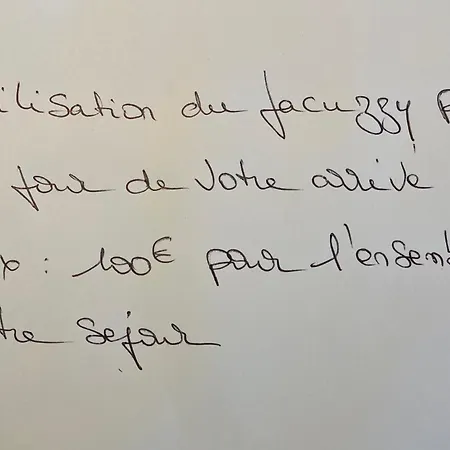 ilisation du Jacuzzy p
jour de votre arrivé
: 100€ pour l'ensem
tre sejour